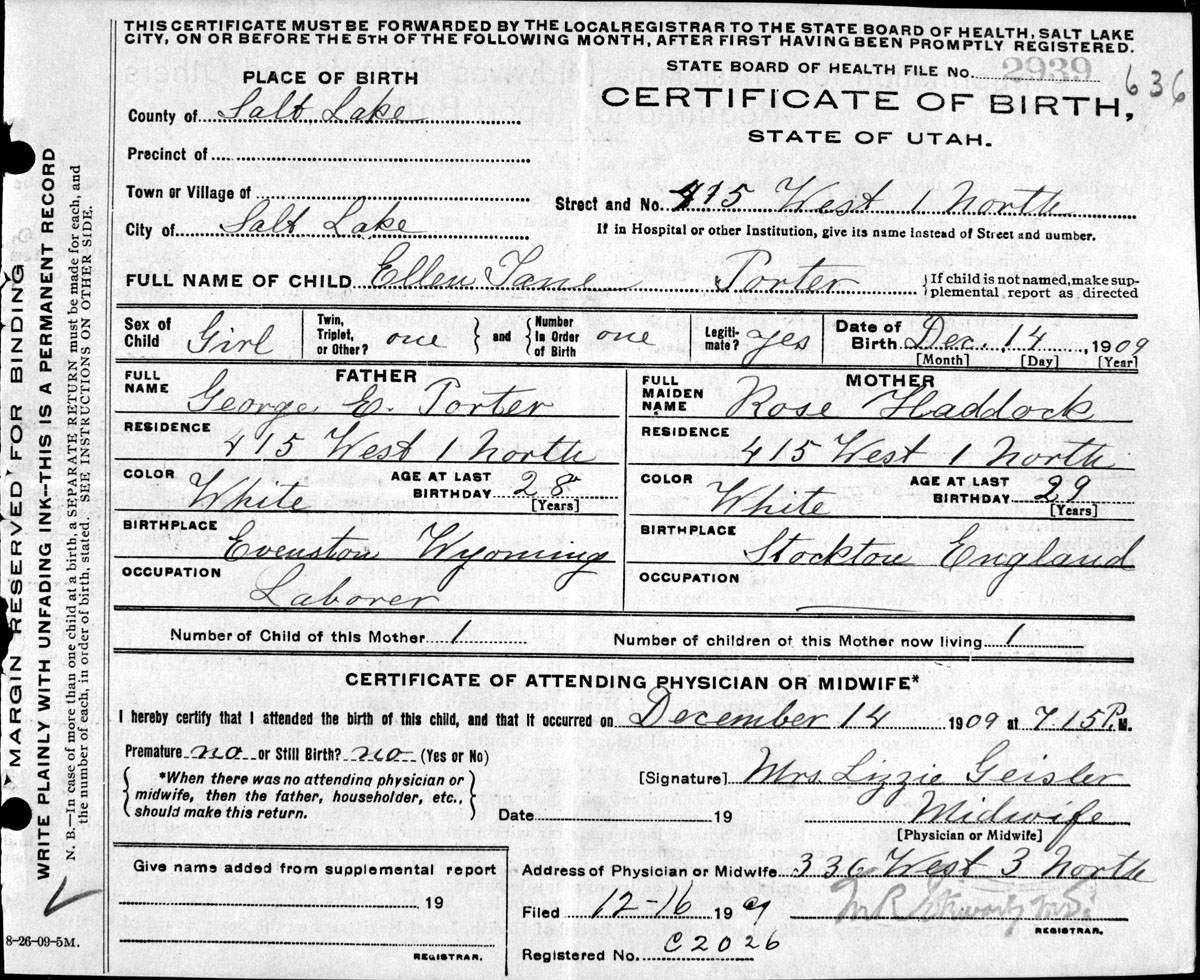 THIS CERTIFICATE MUST BE FORWARDED BY THE LOCAL REGISTRAR TO THE STATE BOARD OF HEALTH, SALT LAKE
CITY, ON OR BEFORE THE 5TH OF THE FOLLOWING MONTH, AFTER FIRST HAVING BEEN PROMPTLY REGISTERED.
STATE BOARD OF HEALTH FILE No. 2939
636
PLACE OF BIRTH
CERTIFICATE OF BIRTH,
STATE OF UTAH.
County of Salt Lake
Precinct of
Town or Village of
Street and No. 415 West 1 North
City of Salt Lake
If in Hospital or other Institution, give its name instead of Street and number.
FULL NAME OF CHILD Ellen Jane Porter
{If child is not named, make sup-
plemental report as directed
Sex of Child Girl
Twin, Triplet, or Other? one
and
Number in Order of Birth one
Legiti-mate? yes
Date of Birth Dec. 14, 1909
[Month] [Day] [Year]
FATHER
FULL NAME George E. Porter
RESIDENCE 415 West 1 North
COLOR White
AGE AT LAST BIRTHDAY 28
[Years]
BIRTHPLACE Evenston Wyoming
OCCUPATION Laborer
MOTHER
FULL MAIDEN NAME Rose Haddock
RESIDENCE 415 West 1 North
COLOR White
AGE AT LAST BIRTHDAY 29
[Years]
BIRTHPLACE Stockton England
OCCUPATION
Number of Child of this Mother 1
Number of children of this Mother now living 1
CERTIFICATE OF ATTENDING PHYSICIAN OR MIDWIFE*
I hereby certify that I attended the birth of this child, and that it occurred on December 14 1909 at 7.15 P.M.
Premature no or Still Birth? no (Yes or No)
*When there was no attending physician or
midwife, then the father, householder, etc.,
should make this return.
[Signature] Mrs. Lizzie Geisler
Date 19
Midwife
[Physician or Midwife]
Give name added from supplemental report
19
REGISTRAR.
Address of Physician or Midwife 336 West 3 North
Filed 12-16 1909
REGISTRAR.
Registered No. C2026
MARGIN RESERVED FOR BINDING
WRITE PLAINLY WITH UNFADING INK—THIS IS A PERMANENT RECORD
N. B.—In case of more than one child at a birth, a SEPARATE RETURN must be made for each, and
the number of each, in order of birth, stated. SEE INSTRUCTIONS ON OTHER SIDE.
8-26-09-5M.